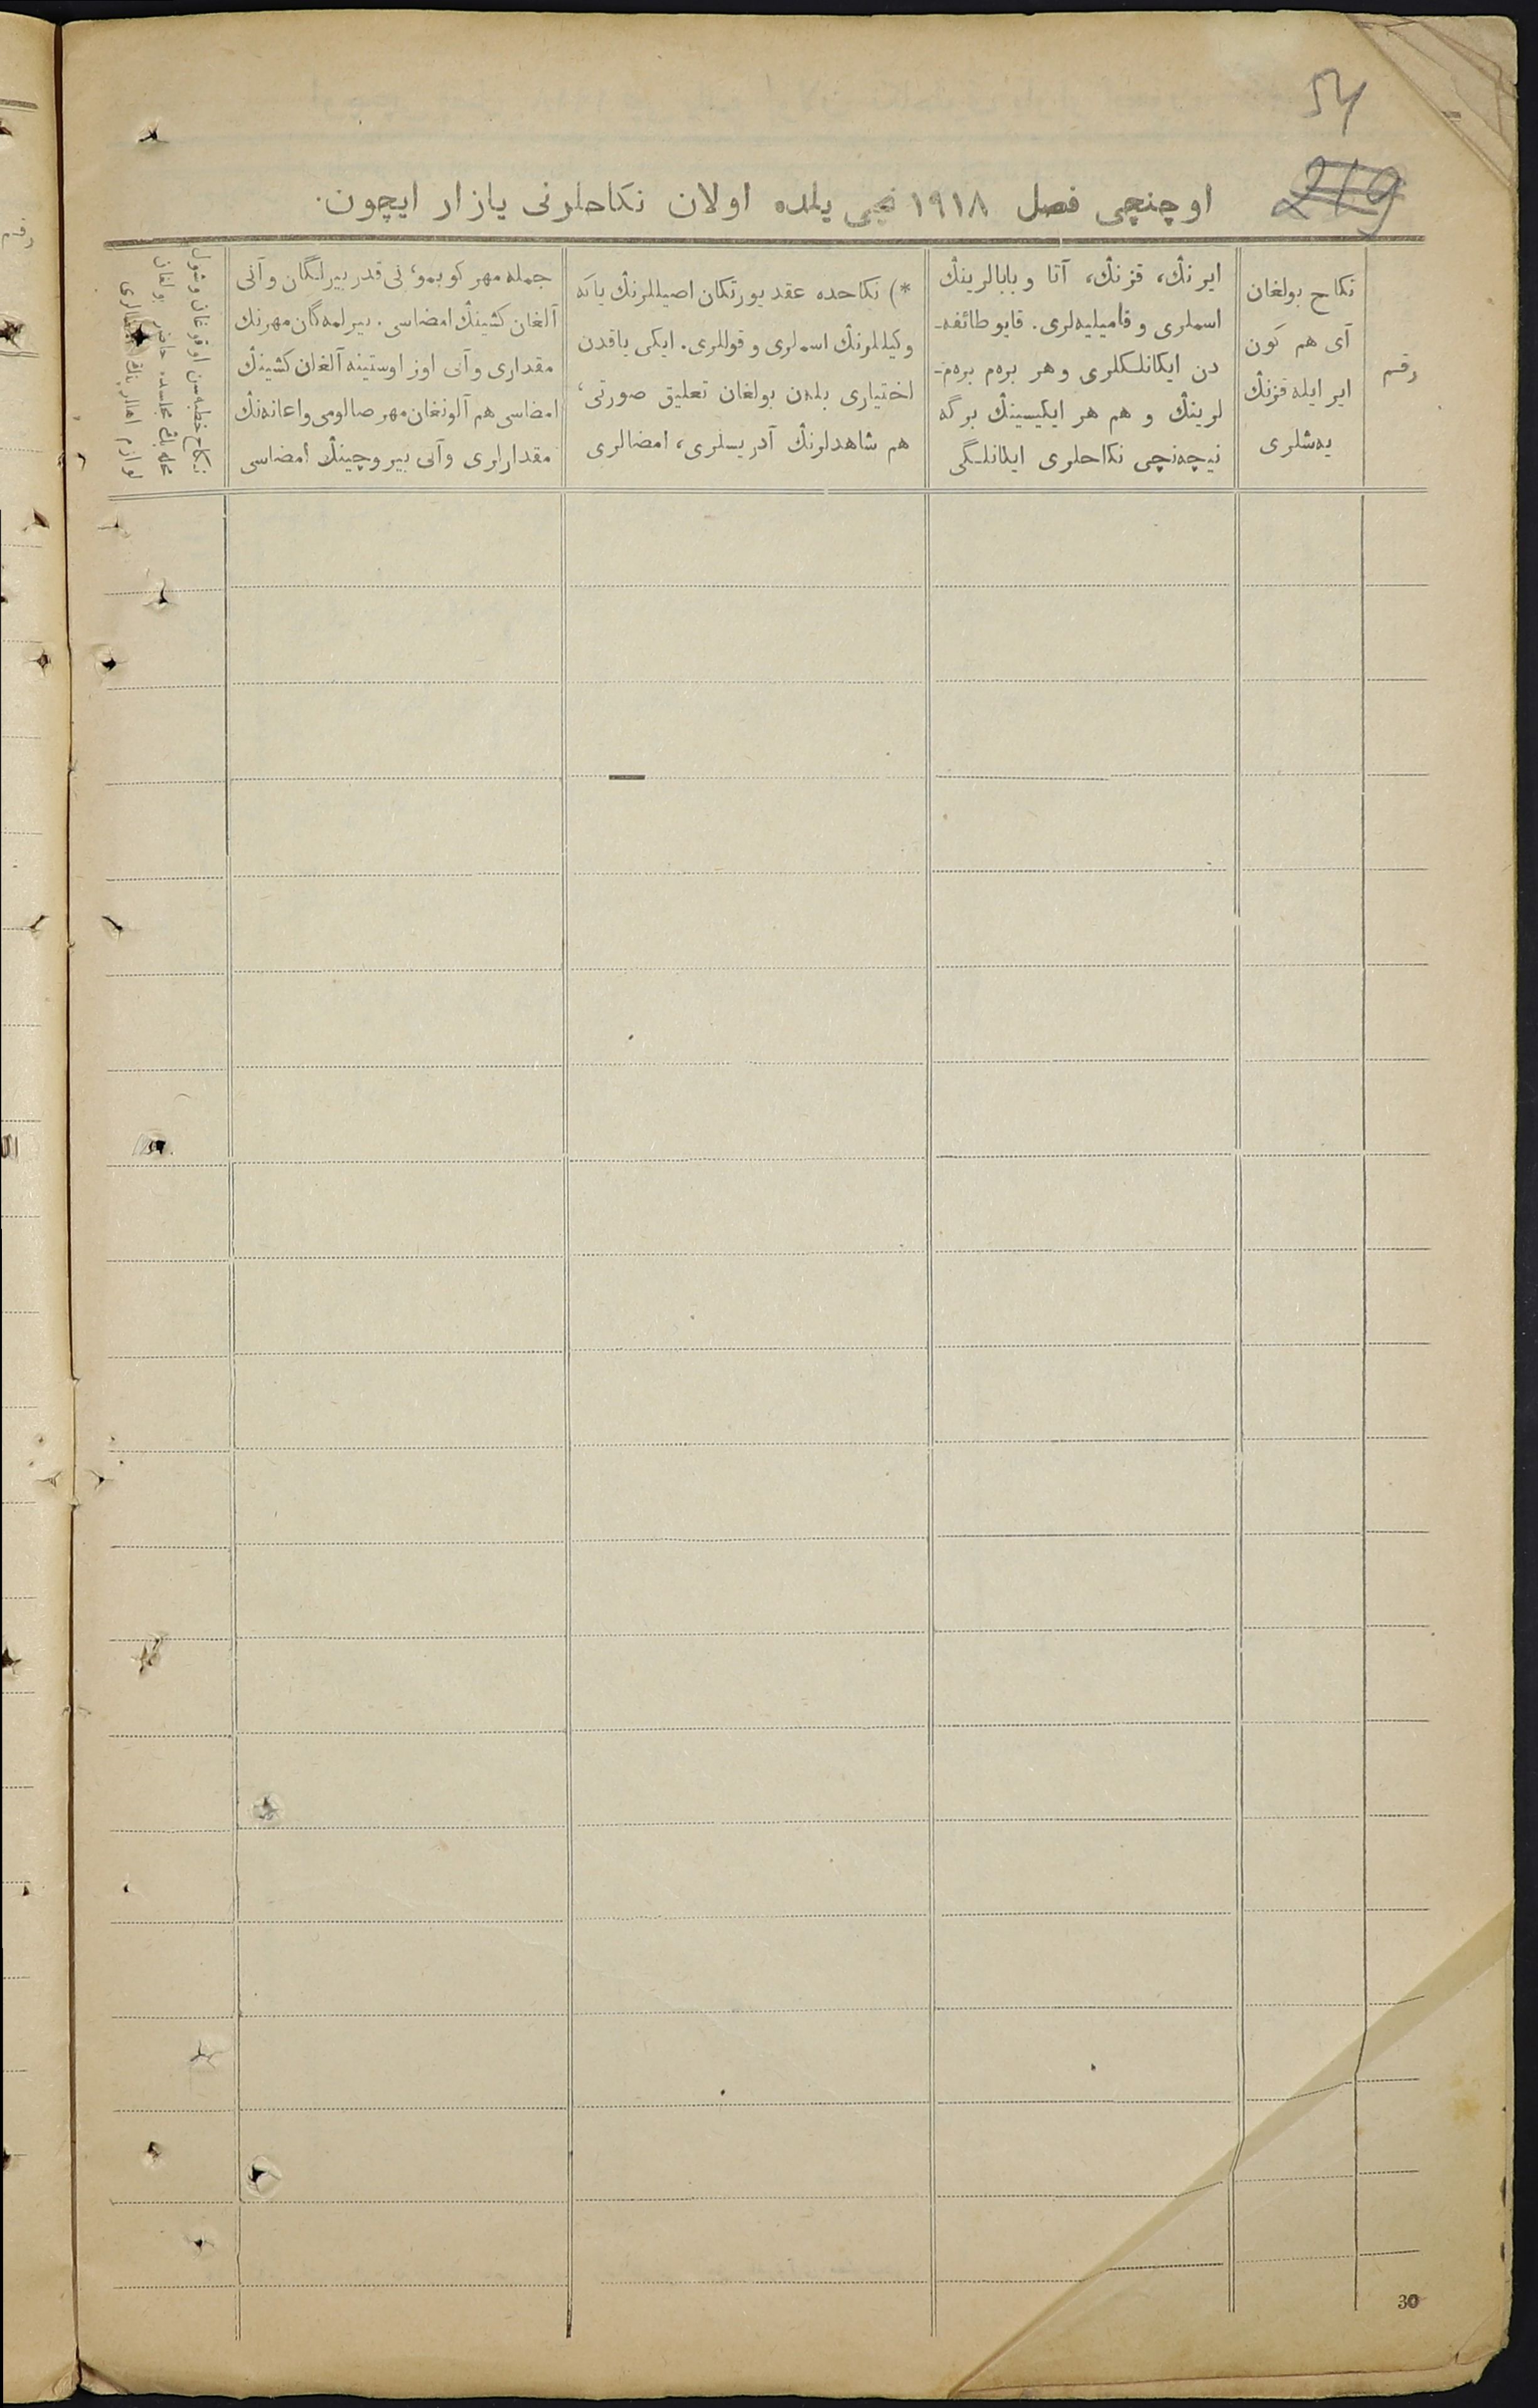 54
219
اوچنچی فصل ۱۹۱۸ نچی یلده اولان نكاحلرنی یازار ایچون.
رقم
نكاح بولغان
آی هم كون
ایر ایله قزنڭ
یه‌شلری
ایرنڭ، قزنڭ، آتا و بابالرینڭ
اسملری و فامیلیه‌لری. قایو طائفه-
دن ایكانلكلری و هر بره‌م بره‌م-
لرینڭ و هم هر ایكیسینڭ برگه
نیچه‌نچی نكاحلری ایكانلگی
*) نكاحده عقد یورتكان اصیللرنڭ یاكه
وكیللرنڭ اسملری و قوللری. ایكی یاقدن
اختیاری بلەن بولغان تعلیق صورتی،
هم شاهدلرنڭ آدریسلری، امضالری
جمله مهر كوبمو، نی قدر بیرلگان و آنی
آلغان كشینڭ امضاسی. بیرلمه‌گان مهرنڭ
مقداری و آنی اوز اوستینه آلغان كشینڭ
امضاسی هم آلونغان مهر صالومی و اعانه‌نڭ
مقدارلری و آنی بیروچینڭ امضاسی
نكاح خطبه‌سن اوقوغان و شول
محله‌نڭ مجلسده حاضر بولغان
لوازم
30